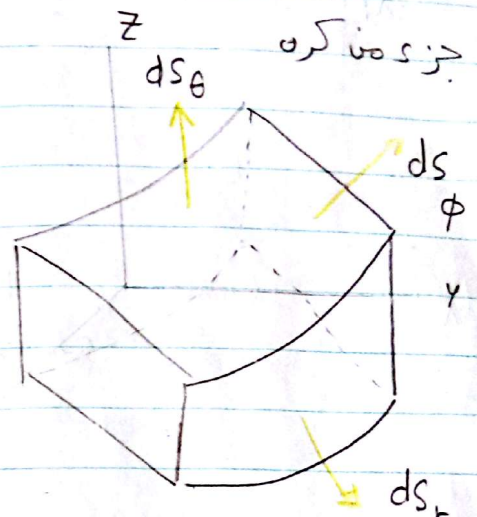 Z
جزء من كره
dSθ
dS
φ
y
dSr